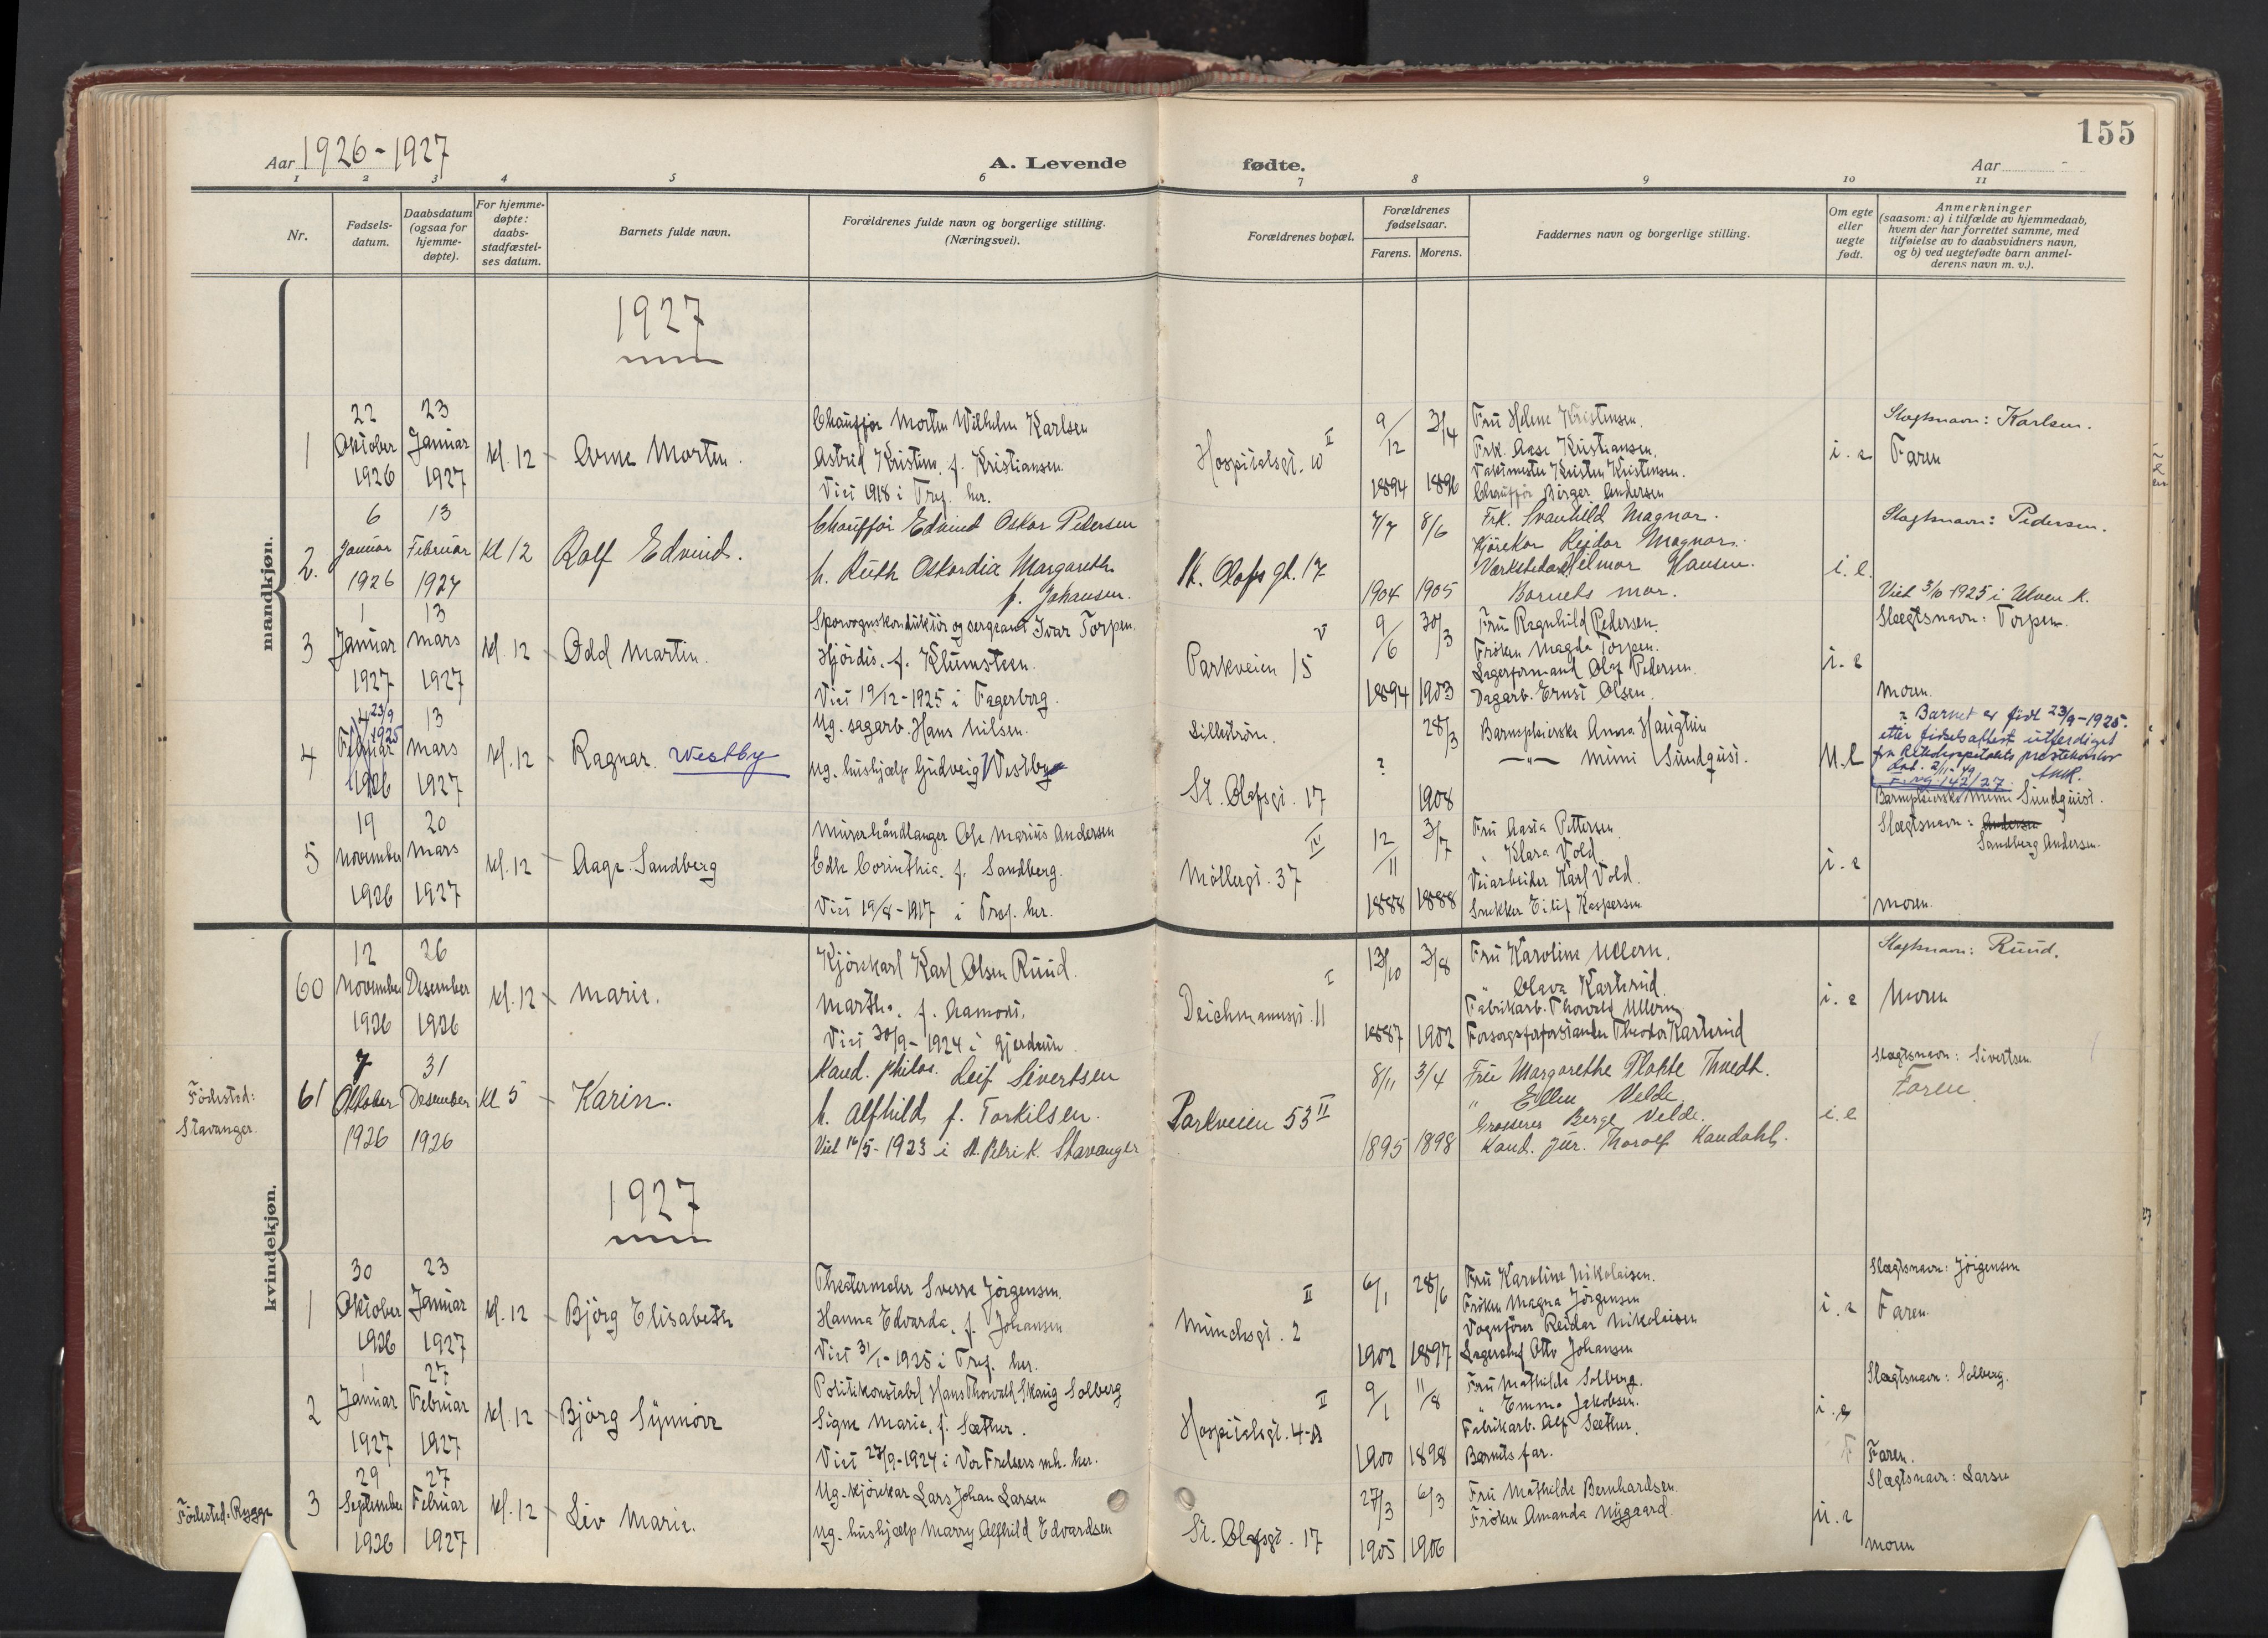 155
Aar 1926-1927
A. Levende fødte.
Aar
1 2 3 4 5 6 7 8 9 10 11
Nr.
Fødsels-
datum.
Daabsdatum
(ogsaa for
hjemme-
døpte).
For hjemme-
døpte:
daabs-
stadfæstel-
ses datum.
Barnets fulde navn.
Forældrenes fulde navn og borgerlige stilling.
(Næringsvei).
Forældrenes bopæl.
Forældrenes
fødselsaar.
Farens. Morens.
Faddernes navn og borgerlige stilling.
Om egte
eller
uegte
født.
Anmerkninger
(saasom: a) i tilfælde av hjemmedaab,
hvem der har forrettet samme, med
tilføielse av to daabsvidners navn,
og b) ved uegtefødte barn anmel-
derens navn m. v.).
mandkjøn.
1927
1
22
Oktober
1926
23
Januar
1927
kl. 12
Arne Morten.
Chauffør Morten Wilhelm Karlsen
Astrid Kristine, f. Kristiansen.
Viet 1918 i Tref. her.
Hospitalsgt. 10 II
9/12
1894
3/4
1896
Fru Helene Kristensen.
Frk. Aase Kristiansen.
Vaktmester Kristen Kristensen.
Chauffør Birger Andersen
i. e
Slegtsnavn: Karlsen.
Faren
2.
6
Januar
1926
13
Februar
1927
Kl 12
Rolf Edvind.
Chauffør Edvind Oskar Pedersen
h. Ruth Oskordia Margareth
f. Johansen.
St. Olafs gt. 17
7/7
1904
8/6
1905
Frk. Svanhild Magnor.
Kjørekar Reidar Magnor.
Hilmar Hansen.
Barnets mor.
i. e.
Slegtsnavn: Pedersen.
Viet 3/10 1925 i Ulven K.
3
1
Januar
1927
13
mars
1927
kl. 12
Odd Martin.
Sporvognskonduktør og sergeant Ivar Torpen.
Hjørdis, f. Klumsteen.
Viet 19/12-1925 i Fagerborg.
Parkveien 15 V
9/6
1894
30/3
1903
Fru Ragnhild Pedersen.
Frøken Magda Torpen.
Lagerformand Olaf Pedersen.
Dagarb. Ernst Olsen.
i. e
Slægtsnavn: Torpen.
moren.
4
4 23/9
Februar 1925
1926
13
mars
1927
kl. 12
Ragnar. Westby
Ug. sagarb. Hans Nilsen.
Ug. hushjælp Gudveig Westby
Lillestrøm.
St. Olafsgt. 17
?
28/3
1908
Barnepleierske Anna Haugtun
—"— Mimi Sundquist.
u. e
Barnet er født 23/9-1925.
etter fødselsattest utferdiget
fra Rikshospitalets prestekontor
dat. 2/11-49
142/27.
Barnepleierske Mimi Sundquist.
5
19
November
1926
20
Mars
1927
kl. 12
Aage Sandberg
Murerhåndlanger Ole Marius Andersen
Edle Corinthia, f. Sandberg.
Viet 19/8-1917 i Tref. her.
Møllergt. 37 IV
12/11
1888
3/7
1888
Fru Aasta Pettersen
" Klara Vold
Veiarbeider Karl Vold.
Snekker Eilif Kaspersen
i. e
Slægtsnavn: Andersen
Sandberg Andersen.
moren.
kvindekjøn.
60
12
November
1926
26
Desember
1926
kl. 12
Marie.
Kjørekarl Karl Olsen Ruud.
Martha, f. Aamodt.
Viet 30/9-1924 i Gjerdrum
Deichmannsgt. 11 I
13/10
1887
3/8
1902
Fru Karoline Ullern.
" Olava Karterud.
Fabrikarb. Thorvald Ullern
Forsorgsforstander Theodor Karterud
i. e
Slegtsnavn: Ruud.
Moren
Fødested:
Stavanger.
61
7
Oktober
1926
31
Desember
1926
Kl 5
Karin.
Kand. philos. Leif Sivertsen
h. Alfhild f. Torkilsen.
Viet 16/5-1923 i St. Petri K. Stavanger
Parkveien 53 II
8/11
1895
3/4
1898
Fru Margarethe Plahte Thvedt.
" Ellen Velde.
Grosserer Berge Velde.
Kand. jur. Thorolf Kandahl.
i. e
Slægtsnavn: Sivertsen
Faren
1927
1
30
Oktober
1926
23
Januar
1927
kl. 12
Bjørg Elisabeth
Theatermaler Sverre Jørgensen.
Hanna Edvarda, f. Johansen
Viet 31/1-1925 i Tref. her.
Munchsgt. 2 II
6/1
1902
28/6
1897
Fru Karoline Nikolaisen.
Frøken Magna Jørgensen
Vognfører Reidar Nikolaisen
Lagerchef Otto Johansen
i. e
Slægtsnavn: Jørgensen
Faren.
2
1
Januar
1927
27
Februar
1927
kl. 12
Bjørg Synnøve
Politikonstabel Hans Thorvald Skaug Solberg
Signe Marie, f. Sæther.
Viet 27/9-1924 i Vor Frelsers mh. her.
Hospitalsgt. 4-A II
9/1
1900
11/8
1898
Fru Mathilde Solberg.
" Emma Jakobsen.
Fabrikarb. Alf Sæther.
Barnets far.
i. e
Slægtsnavn: Solberg.
Faren.
Fødested: Rygge
3
29
September
1926
27
Februar
1927
kl. 12
Liv Marie.
Ug. kjørekar Lars Johan Larsen
Ug. hushjælp Marry Alfhild Edvardsen
St. Olafsgt. 17
27/3
1905
6/3
1906
Fru Mathilde Bernhardsen.
Frøken Amanda Nygaard.
u. e
Slægtsnavn: Larsen
moren